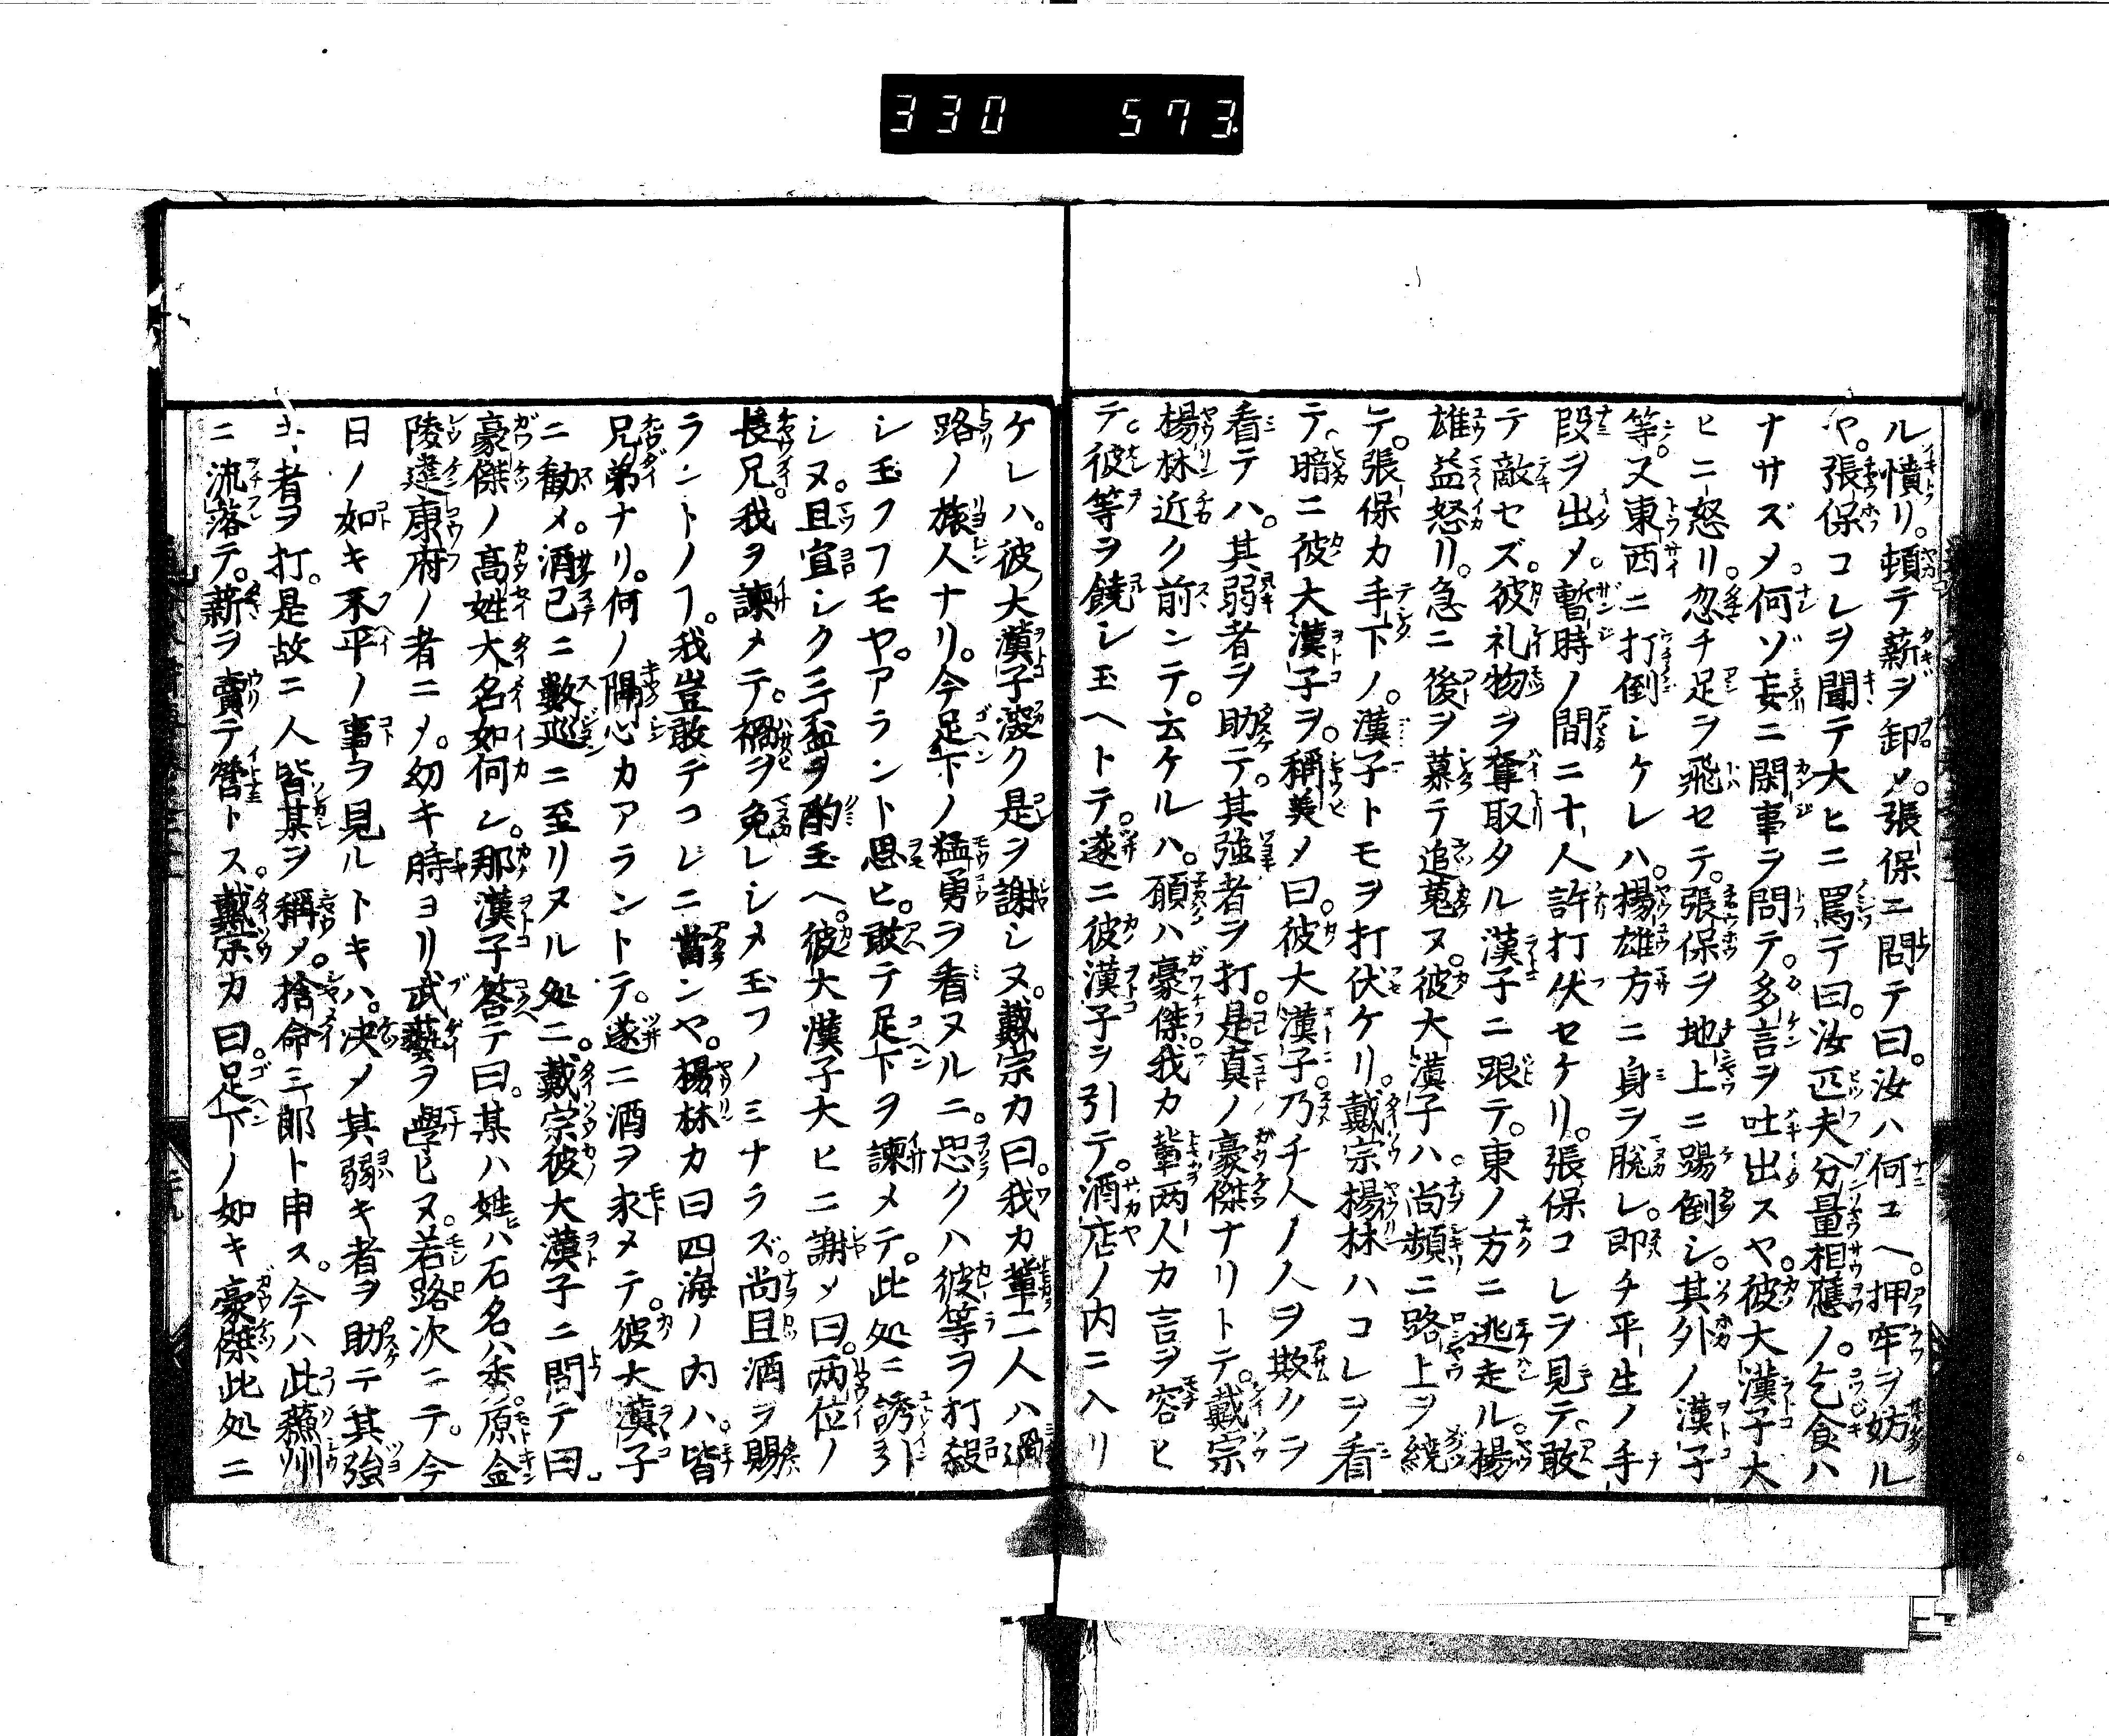 330 573
ル憤リ。頓テ薪ヲ卸メ。張保ニ問テ曰。汝ハ何ユヘ。押牢ヲ妨ル
ヤ。張保コレヲ聞テ大ヒニ罵テ曰。汝匹夫分量相應ノ。乞食ハ
ナサズメ。何ゾ妄ニ閑事ヲ問テ。多言ヲ吐出スヤ。彼大漢子大
ヒニ怒リ。忽チ足ヲ飛セテ。張保ヲ地上ニ踢倒シ。其外ノ漢子
等。又東西ニ打倒シケレハ。楊雄方ニ身ヲ脱レ。即チ平生ノ手
段ヲ出メ。暫時ノ間ニ十人許打伏セケリ。張保コレヲ見テ。敢
テ敵セズ。彼礼物ヲ奪取タル漢子ニ跟テ。東ノ方ニ逃走ル。楊
雄益怒リ。急ニ後ヲ慕テ追蒐ヌ。彼大漢子ハ。尚頻ニ路上ヲ繞
テ。張保カ手下ノ。漢子トモヲ打伏ケリ。戴宗楊林ハコレヲ看
テ。暗ニ彼大漢子ヲ。稱美メ曰。彼大漢子。乃チ人ノ人ヲ欺クヲ
看テハ。其弱者ヲ助テ。其強者ヲ打。是真ノ豪傑ナリトテ。戴宗
楊林近ク前ンテ。云ケルハ。願ハ豪傑我カ輩両人カ言ヲ容ヒ
テ。彼等ヲ饒シ玉ヘトテ。遂ニ彼漢子ヲ引テ。酒店ノ内ニ入リ
ケレハ。彼大漢子深ク是ヲ謝シヌ。戴宗カ曰。我カ輩二人ハ過
路ノ旅人ナリ。今足下ノ猛勇ヲ看ヌルニ。恐クハ彼等ヲ打殺
シ玉フフモヤ。アラント思ヒ。敢テ足下ヲ諫メテ。此処ニ誘引
シヌ。且宜シク三盃ヲ酌玉ヘ。彼大漢子大ヒニ謝メ曰。両位ノ
長兄我ヲ諫メテ。禍ヲ免レシメ玉フノミナラズ。尚且酒ヲ賜
ラントノフ。我豈敢テコレニ當ンヤ。楊林カ曰四海ノ内ハ。皆
兄弟ナリ。何ノ隔心カアラントテ。遂ニ酒ヲ求メテ。彼大漢子
ニ勧メ。酒已ニ數巡ニ至リヌル処ニ。戴宗彼大漢子ニ問テ曰
豪傑ノ高姓大名如何シ。那漢子答テ曰。某ハ姓ハ石名ハ秀。原金
陵建康府ノ者ニメ。幼キ時ヨリ武藝ヲ學ヒヌ。若路次ニテ。今
日ノ如キ不平ノ事ヲ見ルトキハ。決メ其弱キ者ヲ助テ其強
キ者ヲ打。是故ニ人皆某ヲ稱メ。捨命三郎ト申ス。今ハ此蘇州
ニ流落テ。薪ヲ賣テ營トス。戴宗カ曰。足下ノ如キ豪傑此処ニ